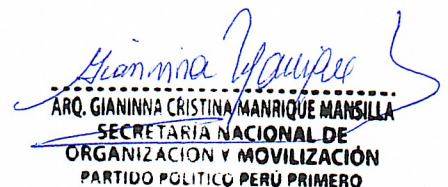 Gianinna Manrique
ARQ. GIANINNA CRISTINA MANRIQUE MANSILLA
SECRETARIA NACIONAL DE
ORGANIZACIÓN Y MOVILIZACIÓN
PARTIDO POLITICO PERÚ PRIMERO